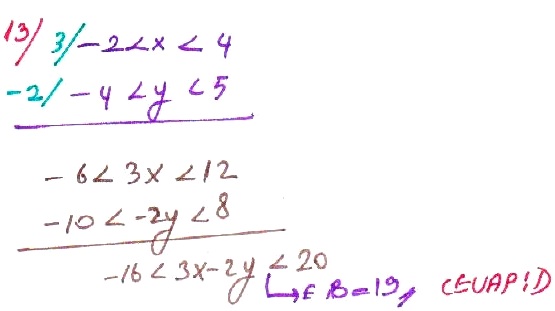 13/ 3/ -2<x<4
-2/ -4<y<5
-6<3x<12
-10<-2y<8
-16<3x-2y<20
↳E B=19, (EVAP:D)